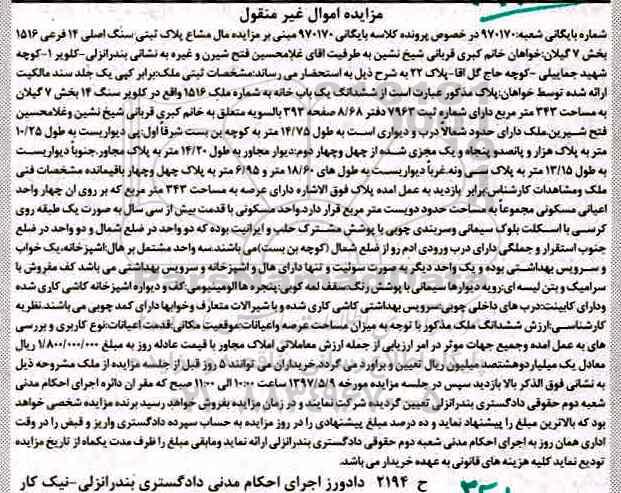 مزایده اموال غیر منقول
شماره بایگانی شعبه:۹۷۰۱۷۰ در خصوص پرونده کلاسه بایگانی ۹۷۰۱۷۰ مبنی بر مزایده مال مشاع پلاک ثبتی سنگ اصلی ۱۴ فرعی ۱۵۱۶
بخش ۷ گیلان:خواهان خانم کبری قربانی شیخ نشین به طرفیت اقای غلامحسین فتح شیرن و غیره به نشانی بندرانزلی-کلویر ۱-کوچه
شهید جماییلی -کوچه حاج گل اقا-پلاک ۲۲ به شرح ذیل به استحضار می رساند:مشخصات ثبتی ملک:برابر کپی یک جلد سند مالکیت
ارائه شده توسط خواهان:پلاک مذکور عبارت است از ششدانگ یک باب خانه به شماره ملک ۱۵۱۶ واقع در کلویر سنگ ۱۴ بخش ۷ گیلان
به مساحت ۳۴۳ متر مربع دارای شماره ثبت ۷۹۶۳ دفتر ۸/۶۸ صفحه ۳۹۲ بالسویه متعلق به خانم کبری قربانی شیخ نشین وغلامحسین
فتح شیرین.ملک دارای حدود شمالاً درب و دیواری است به طول ۱۴/۷۵ متر به کوچه بن بست شرقاً اول:پی دیواریست به طول ۱۰/۲۵
متر به پلاک هزار و پانصدو پنجاه و یک مجزی شده از چهل وچهار دوم:دیوار مجاور به طول ۱۴/۲۰ متر به پلاک مجاور.جنوباً دیواریست
به طول ۱۳/۱۵ متر به پلاک سی ونه.غرباً دیواریست به طول های ۱۸/۶۰ متر و ۶/۹۵ متر به پلاک چهل وچهار باقیمانده مشخصات فنی
ملک ومشاهدات کارشناس:برابر بازدید به عمل امده پلاک فوق الاشاره دارای عرصه به مساحت ۳۴۳ متر مربع که بر روی ان چهار واحد
اعیانی مسکونی مجموعاً به مساحت حدود دویست متر مربع قرار دارد.واحد مسکونی با قدمت بیش از سی سال به صورت یک طبقه روی
کرسی با اسکلت بلوک سیمانی وسربندی چوبی با پوشش مشترک حلب و ایرانیت بوده که دو واحد در ضلع شمال و دو واحد در ضلع
جنوب استقرار و جملگی دارای درب ورودی ادم رو از ضلع شمال (کوچه بن بست)می باشند.سه واحد مشتمل بر هال:اشپزخانه،یک خواب
و سرویس بهداشتی بوده و یک واحد دیگر به صورت سوئیت و تنها دارای هال و اشپزخانه و سرویس بهداشتی می باشد کف مفروش با
سرامیک و بتن لیسه ای:رویه دیوارها سیمانی با پوشش رنگ:سقف لمه کوبی:پنجره ها الومینیومی:کف و دیواره اشپزخانه کاشی کاری شده
ودارای کابینت:درب های داخلی چوبی:سرویس بهداشتی کاشی کاری شده و با شیرالات متعارف وخوابها دارای کمد چوبی می باشند.نظریه
کارشناسی:ارزش ششدانگ ملک مذکور با توجه به میزان مساحت عرصه واعیانات:موقعیت مکانی:قدمت اعیانات:نوع کاربری و بررسی
های به عمل امده وجمیع جهات موثر در امر ارزیابی از جمله ارزش معاملاتی املاک مجاور با قیمت عادله روز به مبلغ ۱/۸۰۰/۰۰۰/۰۰۰ ریال
معادل یک میلیاردوهشتصد میلیون ریال تعیین و براورد می گردد.خریداران می توانند ۵ روز قبل از جلسه مزایده از ملک مشروحه ذیل
به نشانی فوق الذکر بالا بازدید سپس در جلسه مزایده مورخه ۱۳۹۷/۵/۹ ساعت ۱۰:۰۰ الی ۱۱:۰۰ صبح که مقر ان دائره اجرای احکام مدنی
شعبه دوم حقوقی دادگستری بندرانزلی تعیین گردیده شرکت نمایند و در زمان مزایده بفروش خواهد رسید برنده مزایده شخصی خواهد
بود که بالاترین مبلغ را پیشنهاد نماید و ده درصد مبلغ پیشنهادی را در روز مزایده به حساب سپرده دادگستری واریز و قبض را در وقت
اداری همان روز به اجرای احکام مدنی شعبه دوم حقوقی دادگستری بندرانزلی ارائه نماید ومابقی مبلغ را ظرف مدت یکماه از تاریخ مزایده
تودیع نماید کلیه هزینه های قانونی به عهده خریدار می باشد.
ح ۲۱۹۴ دادورز اجرای احکام مدنی دادگستری بندرانزلی-نیک کار